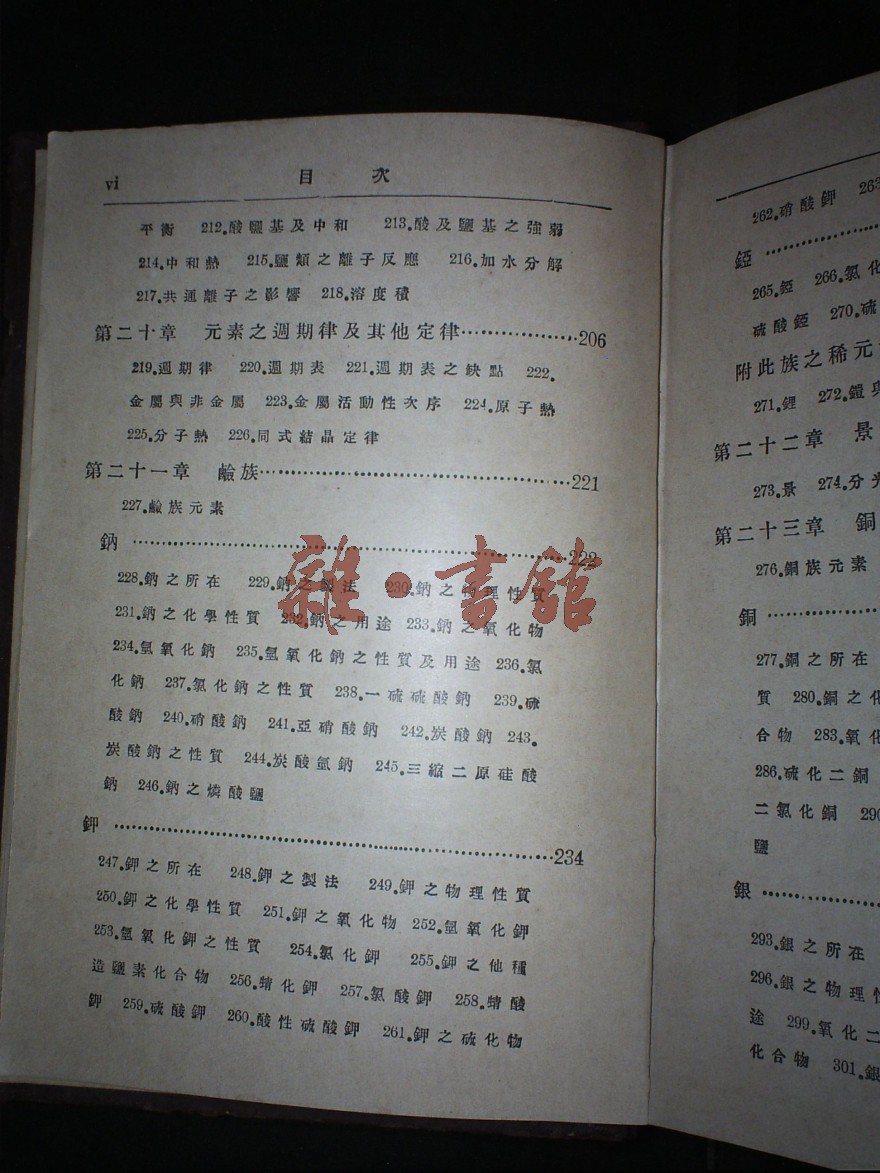 vi 目次
平衡 212.酸鹽基及中和 213.酸及鹽基之強弱
214.中和熱 215.鹽類之離子反應 216.加水分解
217.共通離子之影響 218.溶度積
第二十章 元素之週期律及其他定律………………206
219.週期律 220.週期表 221.週期表之缺點 222.
金屬與非金屬 223.金屬活動性次序 224.原子熱
225.分子熱 226.同式結晶定律
第二十一章 鹼族………………221
227.鹼族元素
鈉………………222
228.鈉之所在 229.鈉之製法 230.鈉之物理性質
231.鈉之化學性質 232.鈉之用途 233.鈉之氧化物
234.氫氧化鈉 235.氫氧化鈉之性質及用途 236.氯
化鈉 237.氯化鈉之性質 238.一硫硫酸鈉 239.硫
酸鈉 240.硝酸鈉 241.亞硝酸鈉 242.炭酸鈉 243.
炭酸鈉之性質 244.炭酸氫鈉 245.三縮二原硅酸
鈉 246.鈉之燐酸鹽
鉀………………234
247.鉀之所在 248.鉀之製法 249.鉀之物理性質
250.鉀之化學性質 251.鉀之氧化物 252.氫氧化鉀
253.氫氧化鉀之性質 254.氯化鉀 255.鉀之他種
造鹽素化合物 256.蜻化鉀 257.氯酸鉀 258.蜻酸
鉀 259.硫酸鉀 260.酸性硫酸鉀 261.鉀之硫化物
雜·書館
262.硝酸鉀 263
錏………………
265.錏 266.氯化
硫酸錏 270.硫
附此族之稀元
271.鋰 272.鎧與
第二十二章 景
273.景 274.分光
第二十三章 銅
276.銅族元素
銅………………
277.銅之所在
質 280.銅之化
合物 283.氧化
286.硫化二銅
二氯化銅 290
鹽
銀………………
293.銀之所在
296.銀之物理性
途 299.氧化二
化合物 301.銀